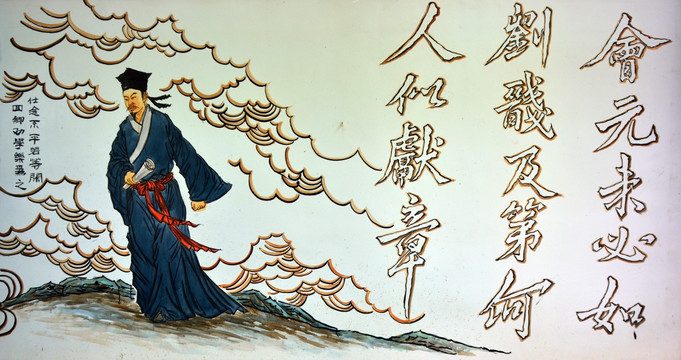 會元未必如
劉戩及第何
人似獻章
仕途不平若等閒
鄉 學樂為之